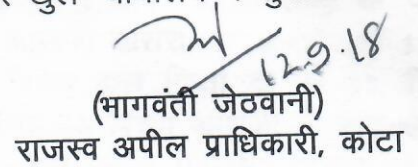 12.9.18
(भागवंती जेठवानी)
राजस्व अपील प्राधिकारी, कोटा